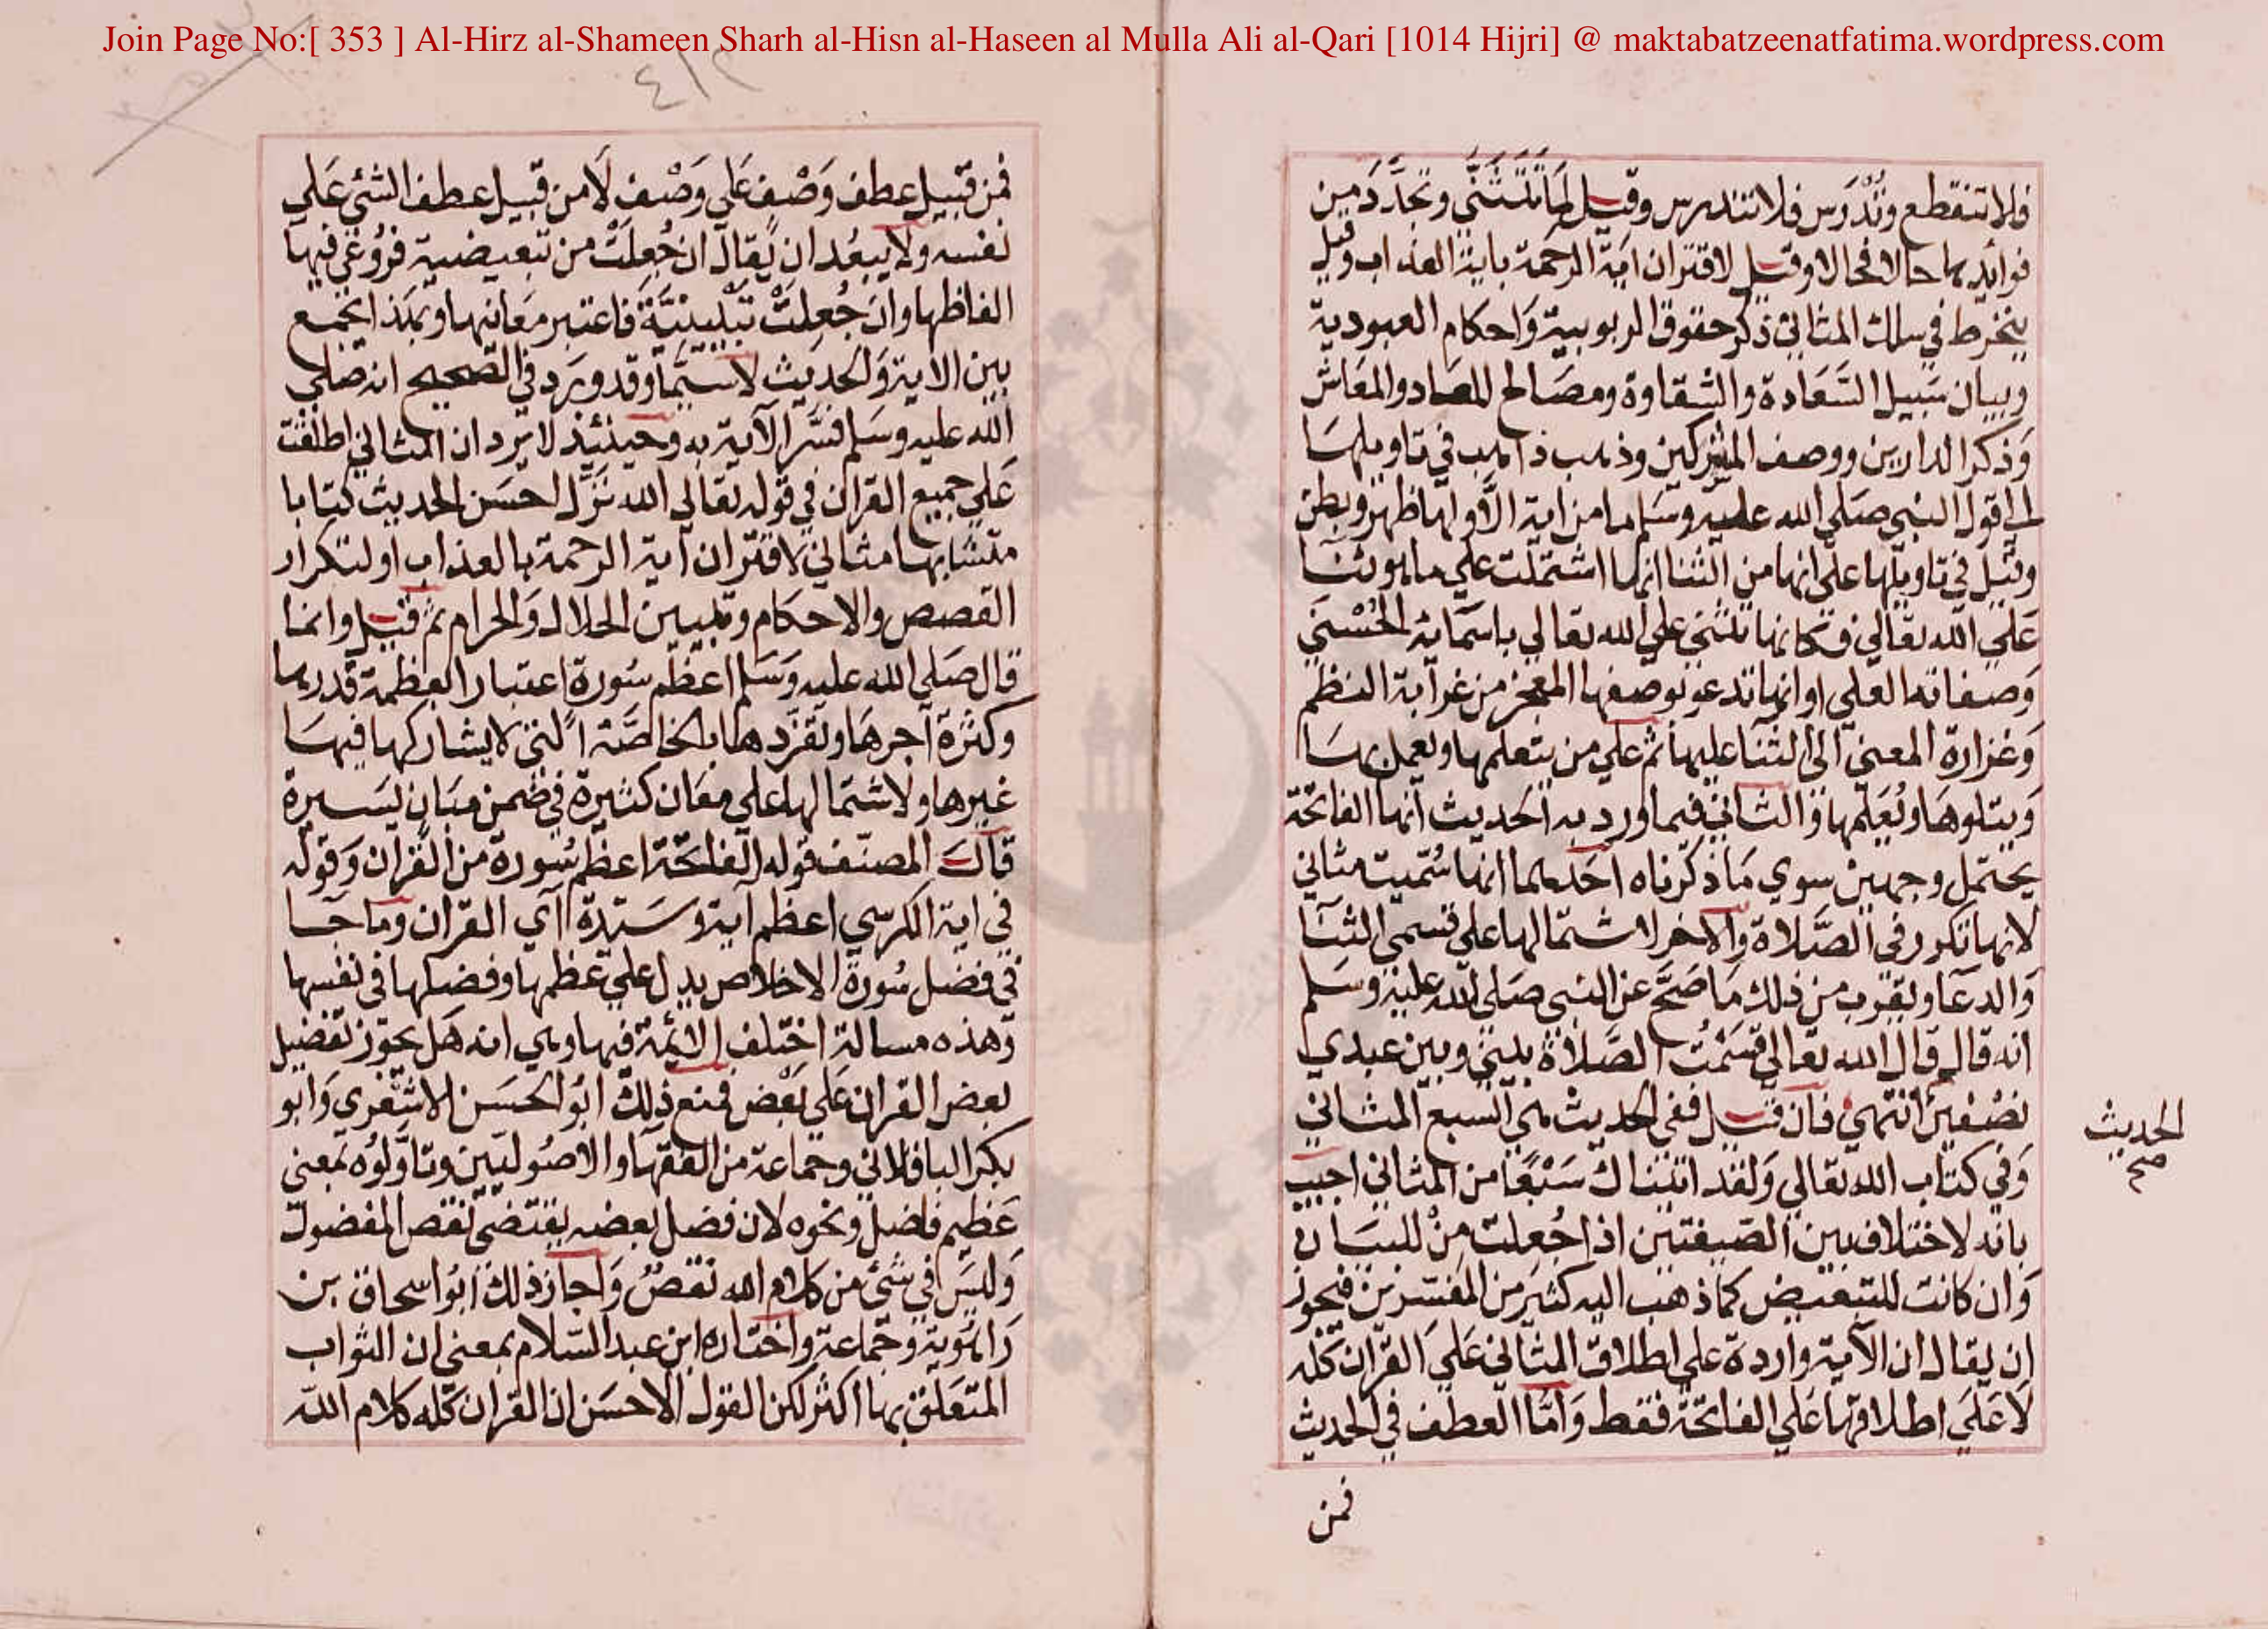 Join Page No:[ 353 ] Al-Hirz al-Shameen Sharh al-Hisn al-Haseen al Mulla Ali al-Qari [1014 Hijri] @ maktabatzeenatfatima.wordpress.com
٤١٢
فلا تنقطع وتُدْرَس فلا تندرس وقيل لما تتثنّي وتجدّد من
فوائدها حالا فحالا وقيل لاقتران اية الرحمة باية العذاب وقيل
ينخرط في سلك المثاني ذكر حقوق الربوبية وَاحكام العبودية
وبيان سَبيل السَّعَادة والشقاوة ومصَالح للمعاد والمعَاش
وَذكر الدارين ووصف المشركين وذهب ذاهب في تاويلهَا
الي قول النبي صَلي الله عليه وسَلم ما من اية الَّا ولها ظهر وبطن
وقيل في تاويلها علي انها من الثنا انها اشتملت علي ما هو ثنَا
عَلي الله تعَالي فكانها تثني علي الله تعالي باسمَائه الحُسْني
وَصفاته العلي او انها تدعو بوصفها المعجز من غرابة النظم
وَغزارة المعني الي الثنا عليها ثم علي من يتعلمها ويعمل بهَا
وَيتلوهَا ويُعَلّمها والثاني فيما ورد به الحَديث انها الفاتحة
يحتمل وجهين سوي مَا ذكرناه احَدهما انها سُمّيت مثاني
لانها تكرر في الصَّلاة والاخر لاشتمالها علي قسمي الثنَا
وَالدعَا ويقرب من ذلك مَا صَحَّ عن النبي صَلي الله عليه وسَلم
انه قال قال الله تعَالي قسَمْتُ الصَّلاة بيني وبين عبدي
نصْفين انتهي فان قيل ففي الحديث هي السبع المثاني
الحديث
صح
وَفي كتاب الله تعَالي وَلقد اتيناك سَبْعًا من المثاني اجيب
بانه لا اختلاف بين الصّيغتين اذا جُعِلت مِنْ للبيَان
وَان كانت للتبعيض كما ذهَب اليه كثير من المفسّرين فيجوز
ان يقال ان الآية واردة علي اطلاق المثاني عَلَي القرآن كله
لَا عَلَي اطلاقها عَلي الفاتحة فقط وَامّا العطف في الحديث
فمن
فمن قبيل عطف وَصْف عَلي وَصْف لَا من قبيل عطف الشئ عَلي
نفسه ولا يبعُد ان يُقال ان جُعِلَتْ من تبعيضية فرُوعي فيها
الفاظها وان جُعِلَتْ تَبْيينيَّةً فاعتبر معَانيها وبهَذا يجمع
بين الاية وَالحَديث لا سيَّما وقد وَرَد في الصحيح انه صَلي
الله عليه وسَلم فسَّر الآية به وحينئذ لا يرد ان المثاني اطلقت
عَلي جميع القران في قوله تعالي الله نزَّل احسَن الحديث كتابا
متشابها مثاني لاقتران آية الرحمة بالعذاب او لتكرار
القصص والاحكام وتبيين الحلال وَالحرام ثم قيل وانما
قال صَلي الله عليه وَسَلم اعظم سُورة اعتبارا بعظمة قدرها
وكثرة اجرهَا وتفرّدها بالخاصَّة التي لا يشاركها فيهَا
غيرها ولاشتمالها علي معَان كثيرة في ضمن مبَان يَسيرة
قال المصنّف قوله الفاتحة اعظم سُورة من القران وَقوله
في اية الكرسي اعظم آية وسَيّدة آي القران وما جَا
في فضل سُورة الاخلاص يدل علي عظمها وفضلها في نفسها
وهذه مسالة اختلف الائمة فيها وهي انه هَل يجوز تفضيل
بعض القران عَلي بَعْض فمنع ذلك ابُو الحسَن الاشعري وَابو
بكر الباقلاني وجماعة من الفقهَا والاصُوليّين وتاوّلوُه بمعني
عَظيم فاضل ونحوه لان فضل بعضه يقتضي نقص المفضول
وَليسَ في شئ من كلام الله نقصٌ وَاجاز ذلك ابُو اسحاق بن
رَاهويه وجماعة واختاره ابن عبد السّلام بمعني ان الثواب
المتعَلق بها اكثر لكن القول الاحسَن ان القران كله كلام الله